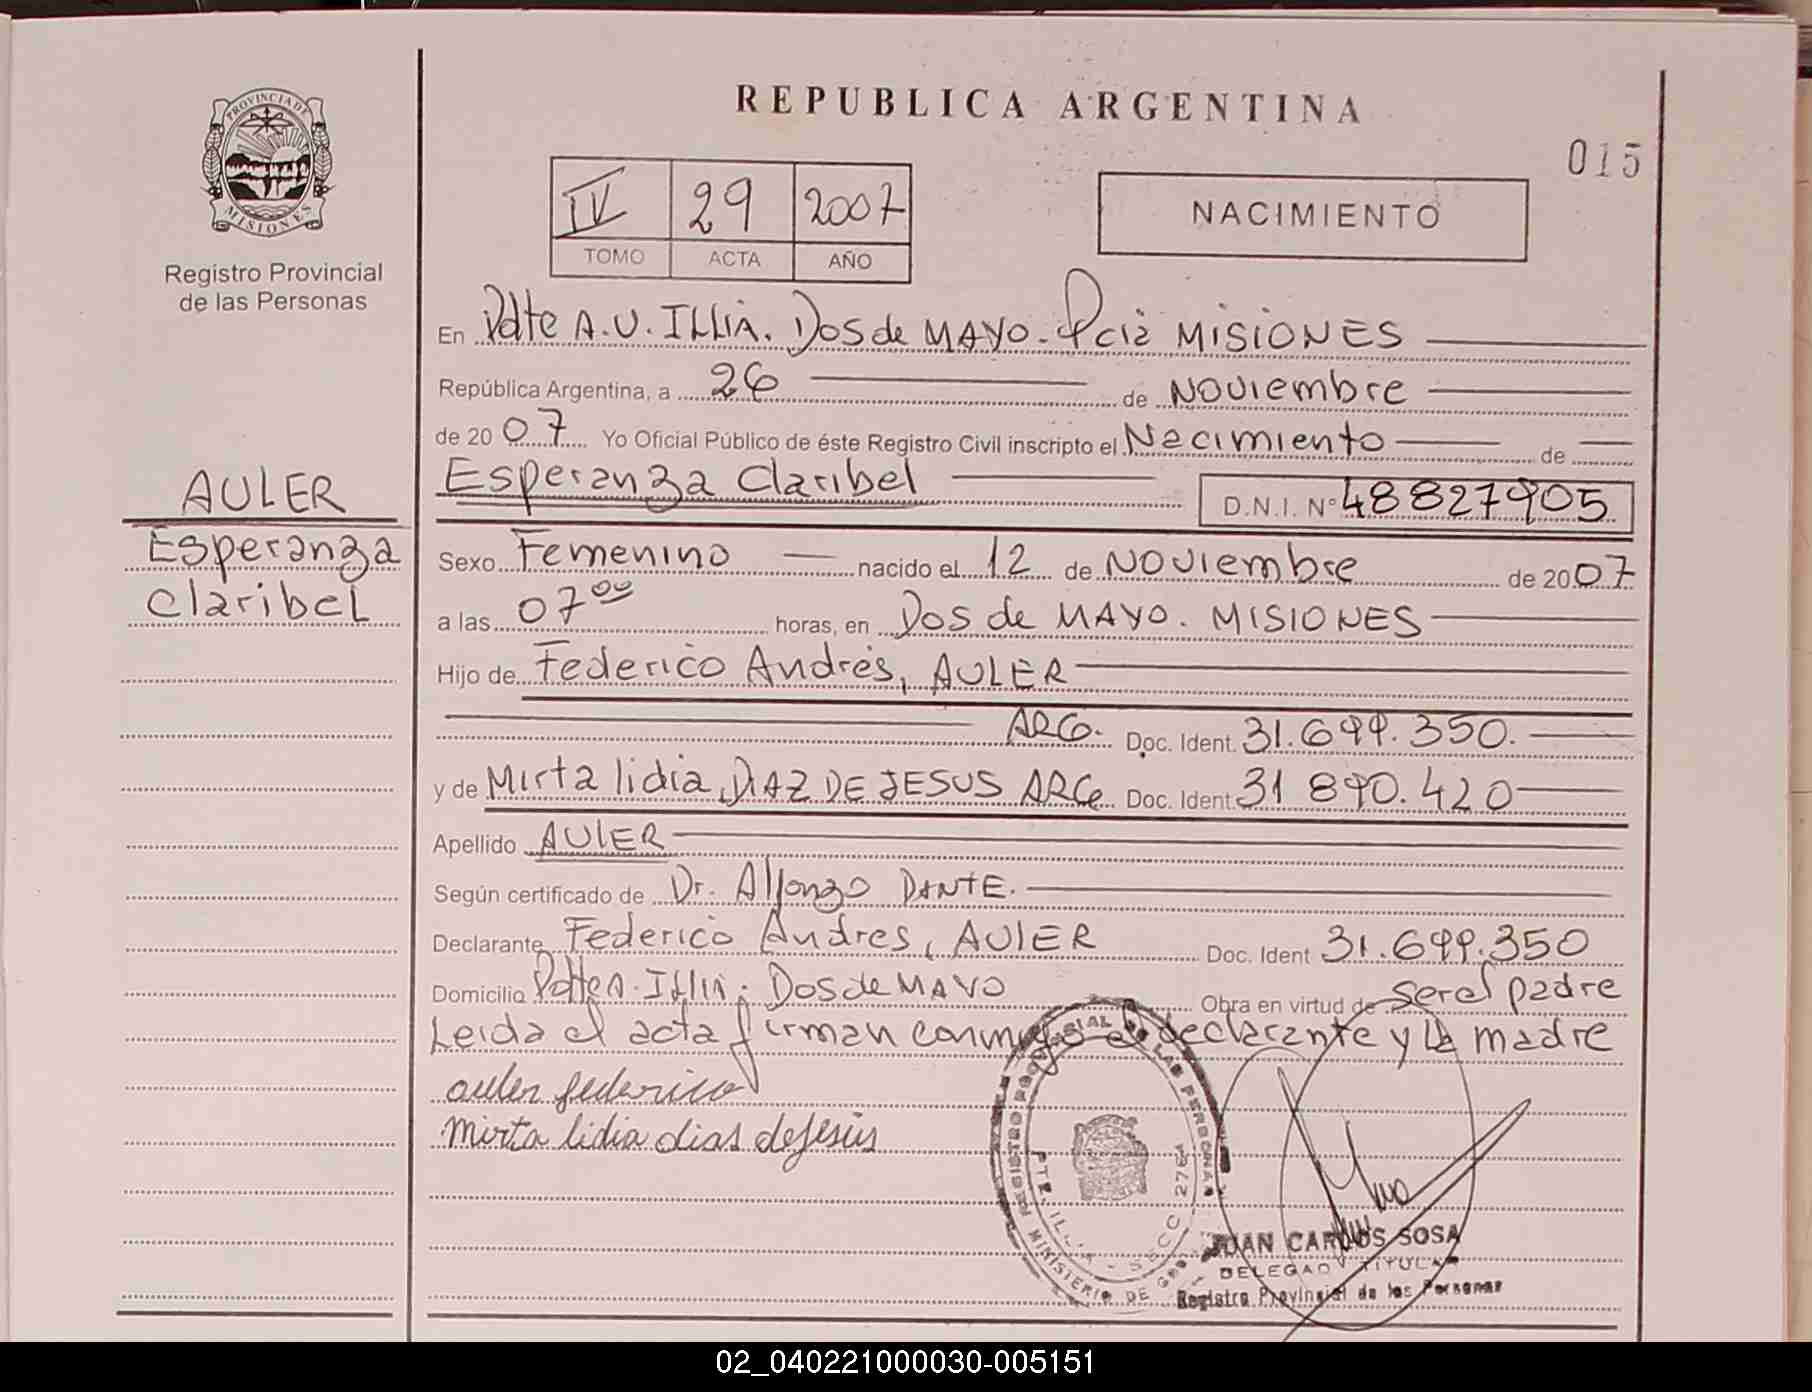 REPUBLICA ARGENTINA
015
PROVINCIA DE
MISIONES
Registro Provincial
de las Personas
IV 29 2007
TOMO ACTA AÑO
NACIMIENTO
En Pdte A.U. ILLIA. Dos de MAYO. Pcia MISIONES
República Argentina, a 26 de Noviembre
de 20 07 Yo Oficial Público de éste Registro Civil inscripto el Nacimiento de
Esperanza Claribel D.N.I. Nº 48827905
AULER
Esperanza
Claribel
Sexo Femenino nacido el 12 de Noviembre de 20 07
a las 07 00 horas, en Dos de MAYO. MISIONES
Hijo de Federico Andrés, AULER
ARG. Doc. Ident. 31.699.350.
y de Mirta lidia, DIAZ DE JESUS ARG. Doc. Ident. 31 890.420
Apellido AULER
Según certificado de Dr. Alfonzo DANTE.
Declarante Federico Andres, AULER Doc. Ident 31.699.350
Domicilio Pdte A. Illia. Dos de MAYO Obra en virtud de ser el padre
Leida el acta firman conmigo el declarante y la madre
auler federico
mirta lidia dias de Jesús
REGISTRO PROVINCIAL DE LAS PERSONAS
PTE. ILLIA - SECC. 2764
MINISTERIO DE
JUAN CARLOS SOSA
DELEGADO TITULAR
Registro Provincial de las Personas
02_040221000030-005151